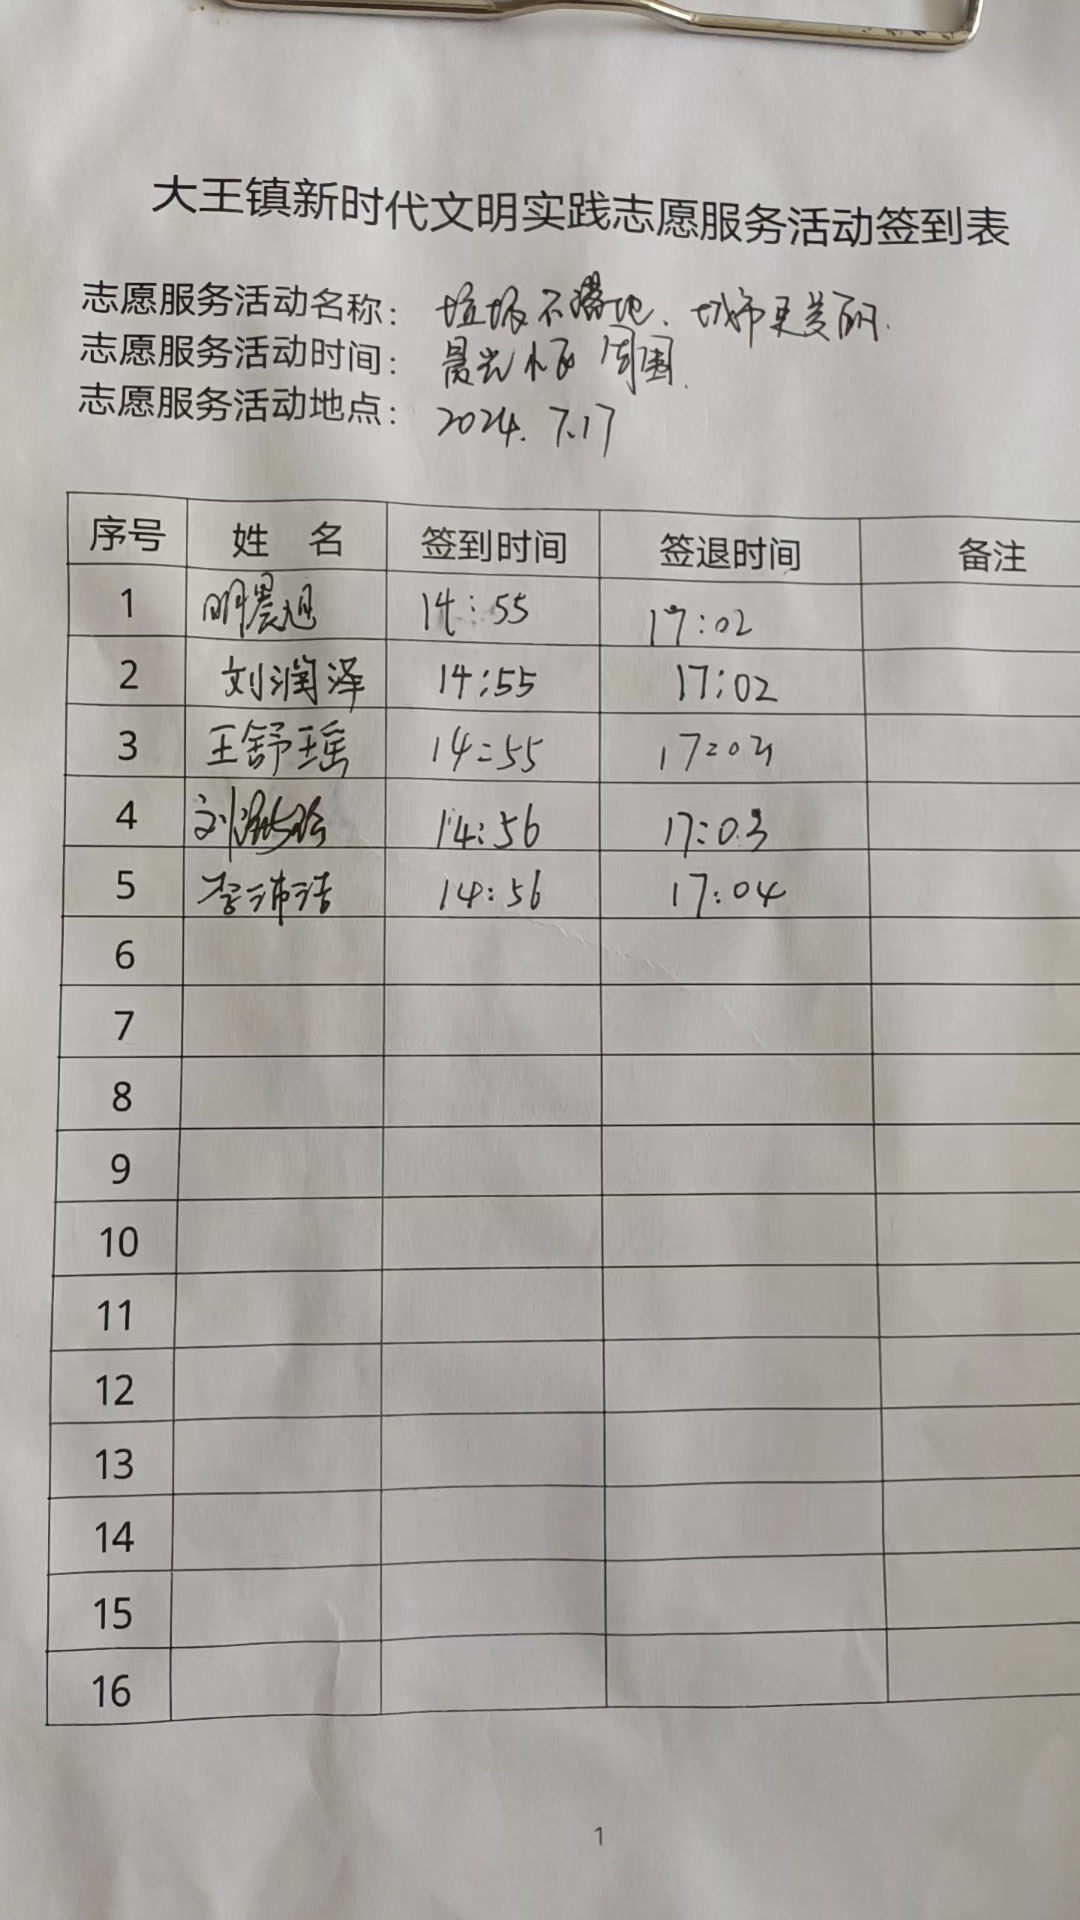 大王镇新时代文明实践志愿服务活动签到表
志愿服务活动名称: 垃圾不落地、城市更美丽.
志愿服务活动时间: 晨光小区 周围.
志愿服务活动地点: 2024. 7.17
序号 姓 名 签到时间 签退时间 备注
1 明晨旭 14:55 17:02
2 刘润泽 14:55 17:02
3 王舒瑶 14:55 17:03
4 刘 14:56 17:03
5 李沛洁 14:56 17:04
6
7
8
9
10
11
12
13
14
15
16
1